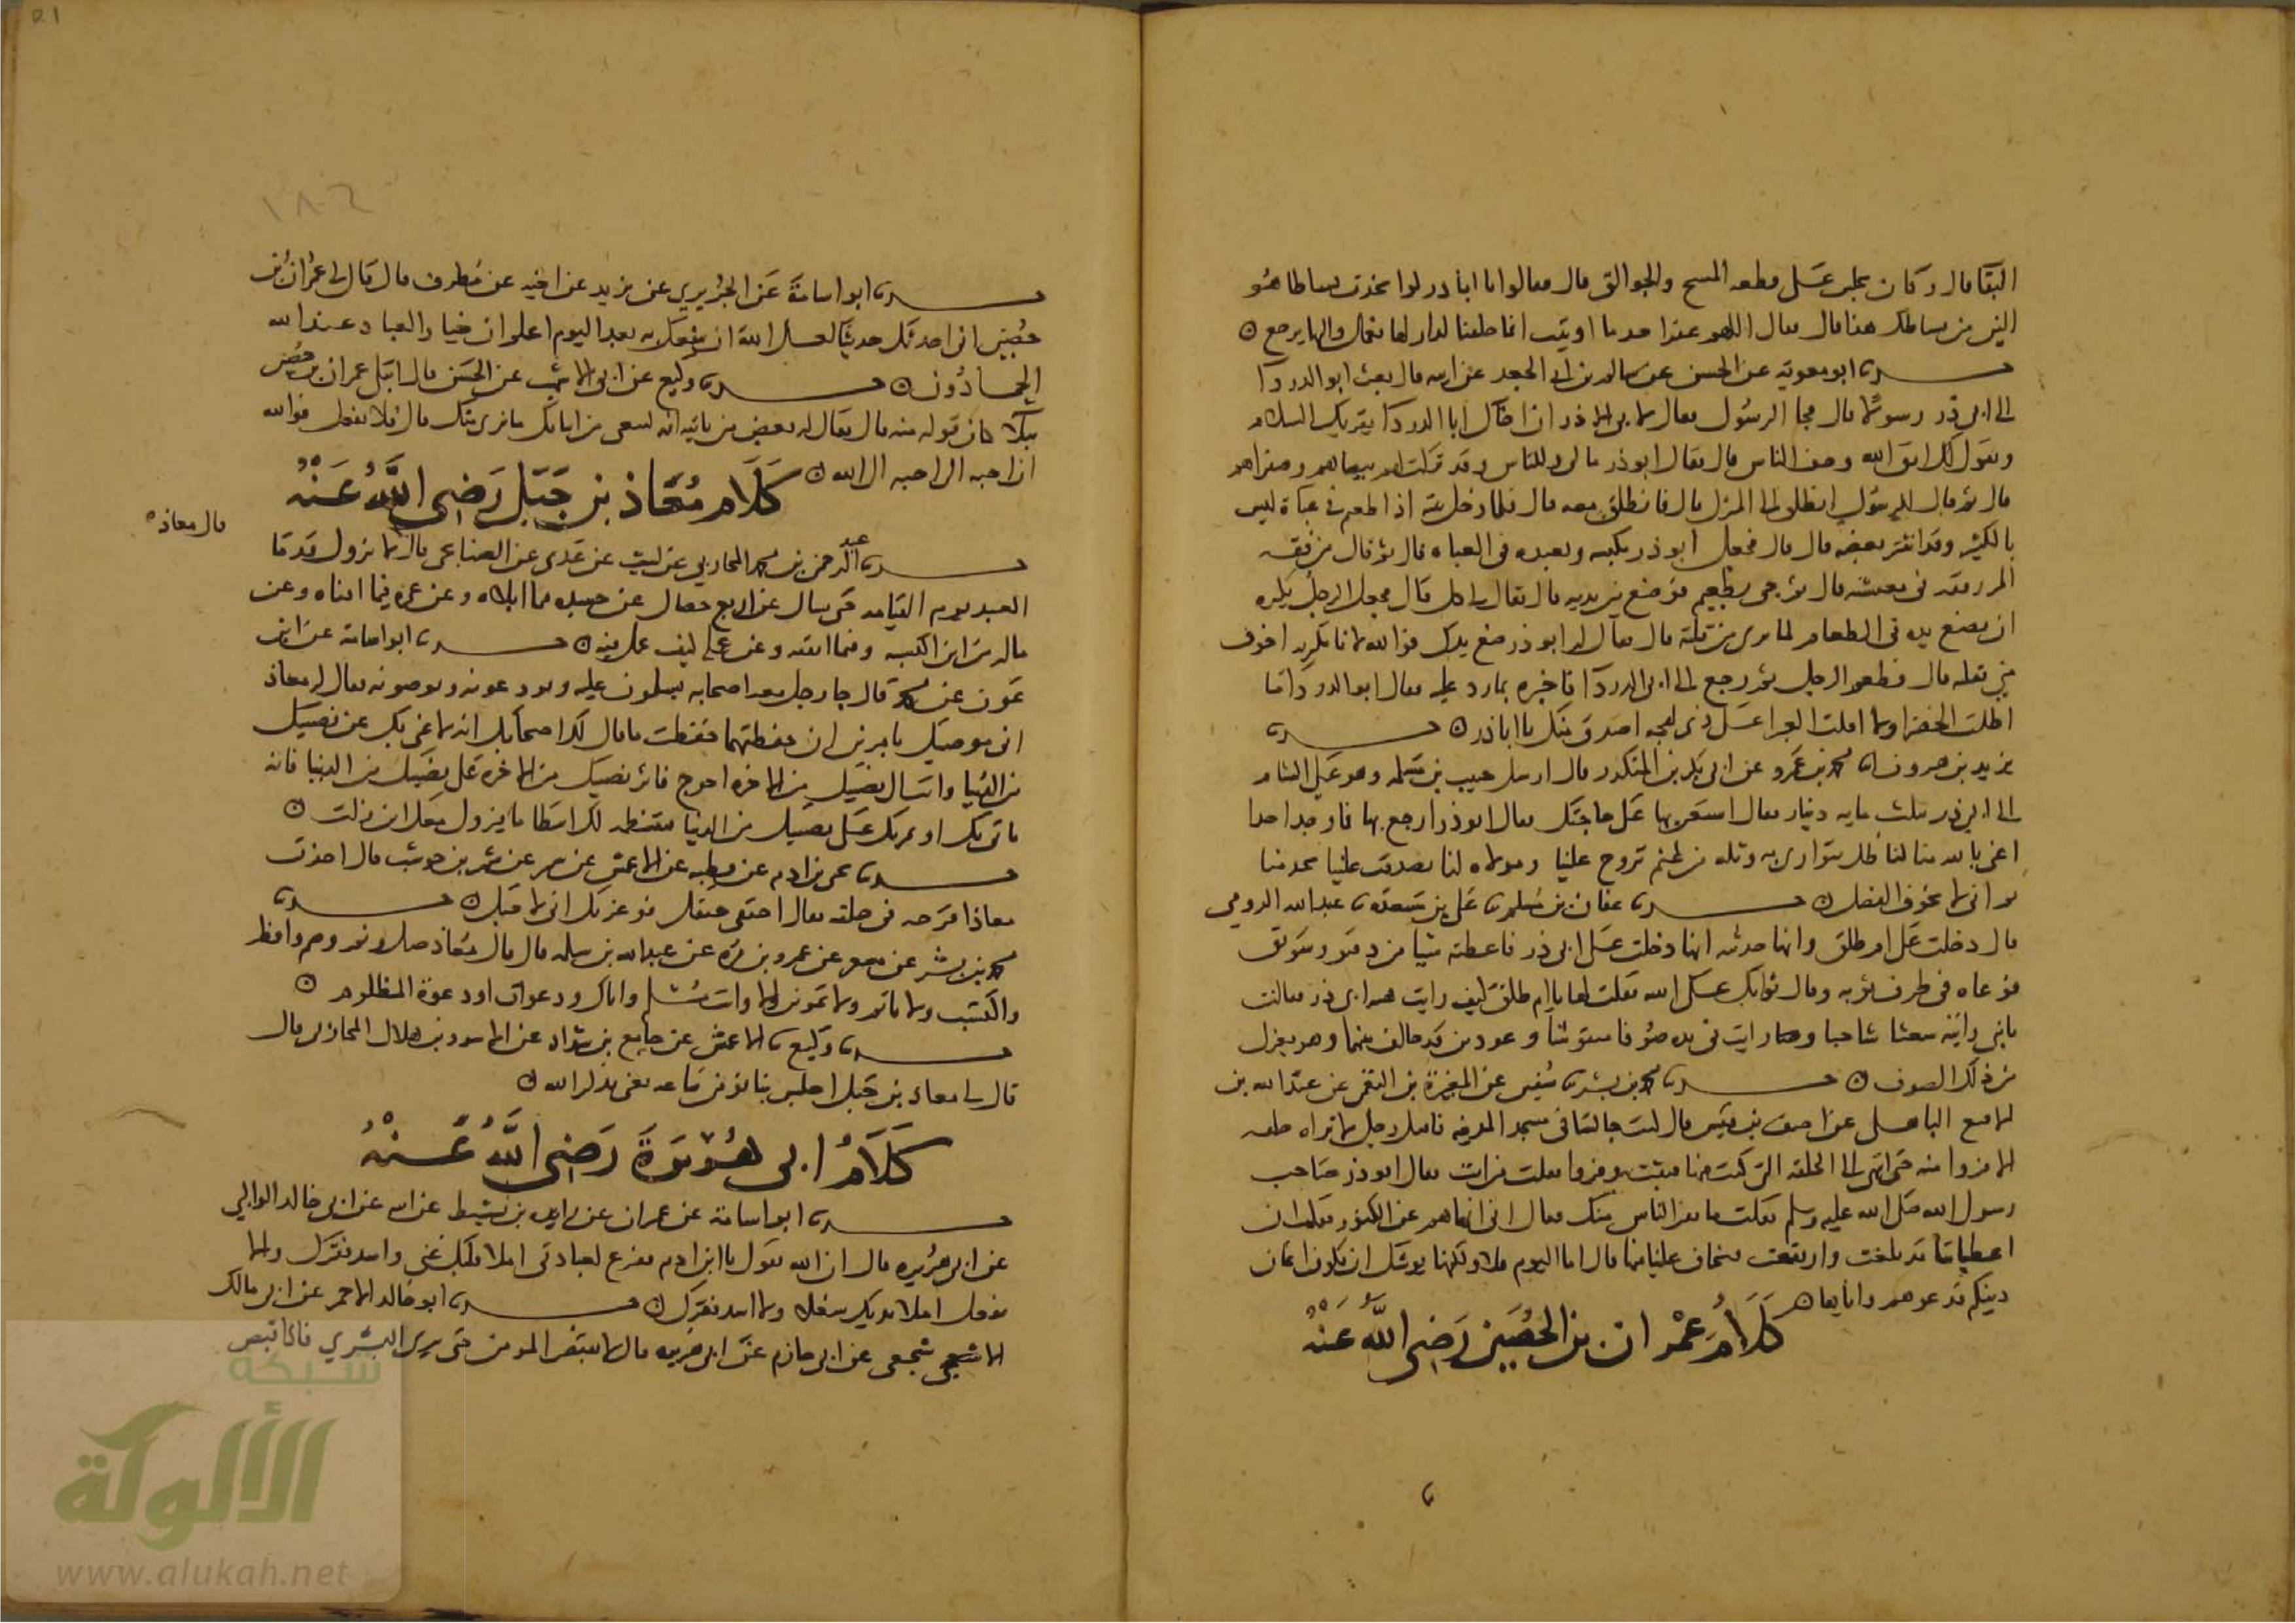 البقا قال وكان يجلس على قطعه المسح والجوالق قال فقالوا يا ابا ذر لو اتخذت بساطا هو
الين من بساطك هذا قال فقال اللهم غفرا خذ ما اوتيت انما خلقنا لدار لها نعمل واليها نرجع
حدثنا ابو معوية عن الحسن عن سالم بن ابي الجعد عن ابيه قال بعث ابو الدرداء
الى ابي ذر رسولا قال فجا الرسول فقال لابي ذر ان اخاك ابا الدرداء يقريك السلام
ويقول لك اتق الله وخف الناس قال فقال ابو ذر مالي وللناس وقد تركت لهم بيضاهم وصفراهم
قال ثم قال للرسول انطلق الى المنزل قال فانطلق معه قال فلما دخل بيته اذا طعيم في عباة ليس
بالكثير وقد انتثر بعضه قال فجعل ابو ذر يكنسه ويعيده في العباه قال ثم قال من فقه
المر رفقه في معيشته قال ثم جي بطعيم فوضع بين يديه قال فقال لي كل قال فجعل الرجل يكره
ان يضع يده في الطعام لما يرى من قلته قال فقال له ابو ذر ضع يدك فوالله لانا بكثرته اخوف
مني بقلته قال فطعم الرجل ثم رجع الى ابي الدرداء فاخبره بما رد عليه فقال ابو الدرداء ما
اظلت الخضرا ولا اقلت الغبرا على ذي لهجه اصدق منك يا ابا ذر حدثنا
يزيد بن هرون انا محمد بن عمرو عن ابي بكر بن المنكدر قال ارسل حبيب بن مسلمه وهو على الشام
الى ابي ذر بثلث مايه دينار فقال استعن بها على حاجتك فقال ابو ذر ارجع بها فما وجد احدا
اغنى بالله منا لنا ظل نتوارى به وثلة من غنم تروح علينا ومولاه لنا تصدقت علينا بخدمتها
ثم اني لا تخوف الفضل حدثنا عفان بن مسلم ثنا علي بن مسعدة ثنا عبد الله الرومي
قال دخلت على ام طلق وانها حدثته انها دخلت على ابي ذر فاعطته شيا من دقيق وسويق
فوعاه في طرف ثوبه وقال ثوابك على الله فقلت لها يا ام طلق كيف رايت هيه ابي ذر فقالت
يا بني رايته شعثا شاحبا ورايت في يده صوفا منفوشا وعودين قد خالف بينهما وهو يغزل
من ذلك الصوف حدثنا محمد بن بشر ثنا سفين عن المغيرة بن النعمن عن عبد الله بن
الاقنع الباهلي عن احنف بن قيس قال كنت جالسا في مسجد المدينه فاقبل رجل لا تراه حلقه
الا فروا منه حتى انتهى الى الحلقه التي كنت فيها فثبت وفروا فقلت من انت فقال ابو ذر صاحب
رسول الله صلى الله عليه وسلم فقلت ما يفر الناس منك فقال اني انهاهم عن الكنوز فقلت ان
اعطياتنا قد بلغت وارتفعت فتخاف علينا منها قال اما اليوم فلا ولكنها يوشك ان تكون اثمان
دينكم فدعوهم واياها
كلام عمران بن الحصين رضي الله عنه
١٨٦
حدثنا ابو اسامة عن الجريري عن يزيد عن اخيه عن مطرف قال قال لي عمران بن
حصين اني احدثك حديثا لعل الله ان ينفعك به بعد اليوم اعلم ان خيار العباد عند الله
الحمادون حدثنا وكيع عن ابي الاشهب عن الحسن قال ابتلي عمران بن حصين
ببلا كان توله منه قال فقال له بعض من ياتيه انه ليمنعني من اتيانك ما نرى بك قال فلا تفعل فوالله
ان احبه الي احبه الى الله
كلام معاذ بن جبل رضي الله عنه
قال معاذ
حدثنا عبد الرحمن بن محمد المحاربي عن ليث عن عدي عن الصنابحي قال لا تزول قدما
العبد يوم القيامه حتى يسال عن اربع خصال عن جسده فيما ابلاه وعن عمره فيما افناه وعن
ماله من اين اكتسبه وفيما انفقه وعن علمه كيف عمل فيه حدثنا ابو اسامة عن ابن
عون عن محمد قال جا رجل معه اصحابه يسلمون عليه ويودعونه ويوصونه فقال له معاذ
اني موصيك بامرين ان حفظتهما حفظت ما قال لك اصحابك انه لا غنى بك عن نصيبك
من الدنيا وانت الى نصيبك من الاخره احوج فاثر نصيبك من الاخره على نصيبك من الدنيا فانه
ياتي بك او يمر بك على نصيبك من الدنيا فينتظمه لك انتظاما يزول معك اين زلت
حدثنا يحيى بن ادم عن قطبه عن الاعمش عن شمر عن شهر بن حوشب قال اخذت
معاذا قرحه في حلقه فقال اخنقني خنقك فوعزتك اني لاحبك حدثنا
محمد بن بشر عن مسعر عن عمرو بن مره عن عبد الله بن سلمه قال قال معاذ صل ونم وصم وافطر
واكتسب ولا تاثم ولا تموتن الا وانت مسلم واياك ودعوات او دعوة المظلوم
حدثنا وكيع ثنا الاعمش عن جامع بن شداد عن الاسود بن هلال المحاربي قال
قال لي معاذ بن جبل اجلس بنا نؤمن ساعه يعني نذكر الله
كلام ابي هريرة رضي الله عنه
حدثنا ابو اسامة عن عمران بن زايده بن نشيط عن ابيه عن ابي خالد الوالبي
عن ابي هريره قال ان الله يقول يا ابن ادم تفرغ لعبادتي املا قلبك غنى واسد فقرك والا
تفعل املا يديك شغلا ولا اسد فقرك حدثنا ابو خالد الاحمر عن ابي مالك
الاشجعي عن ابي حازم عن ابي هريره قال لا يقبض المومن حتى يرى البشرى فاذا قبض
شبكة
الألوكة
www.alukah.net